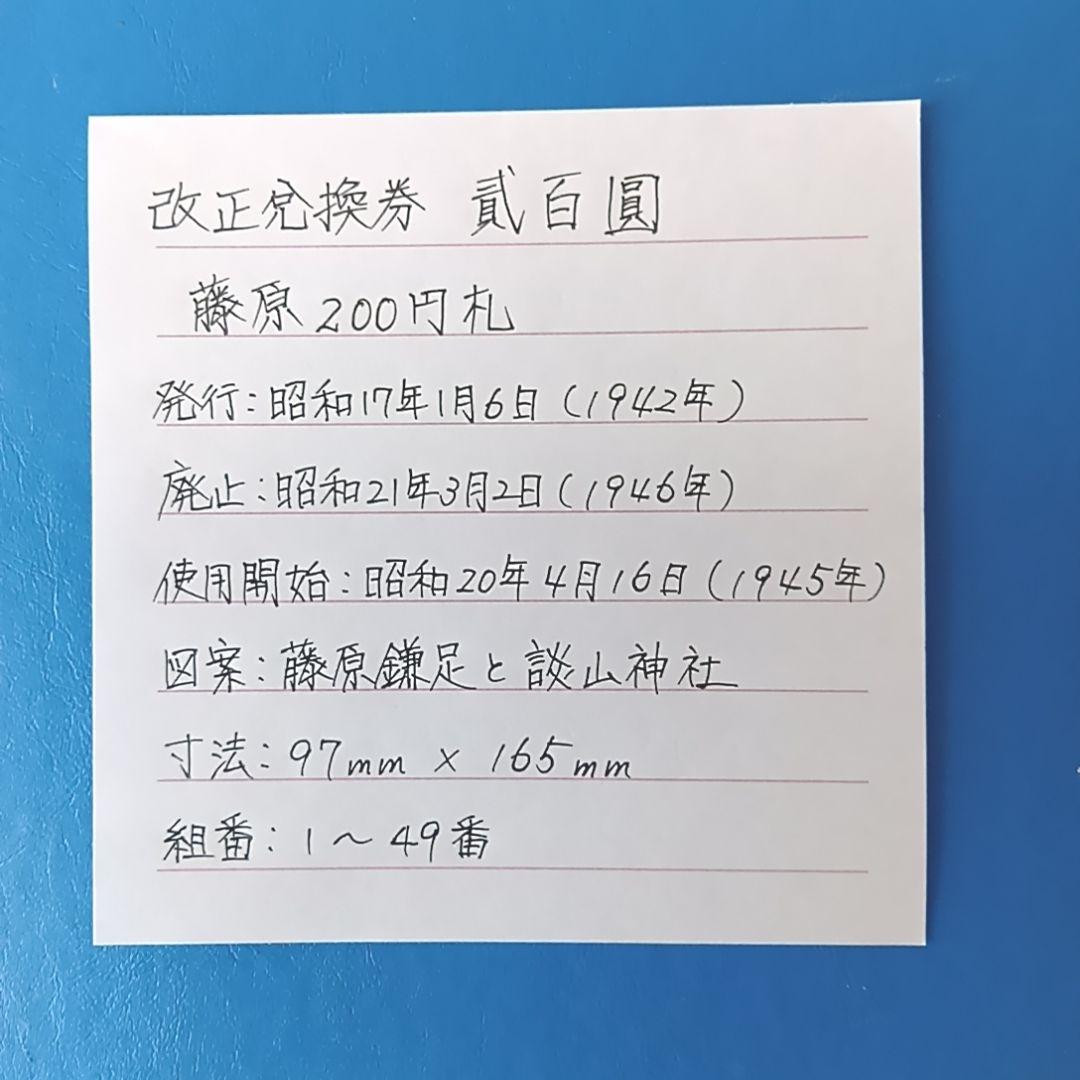 改正兌換券 貳百圓
藤原200円札
発行：昭和17年1月6日（1942年）
廃止：昭和21年3月2日（1946年）
使用開始：昭和20年4月16日（1945年）
図案：藤原鎌足と談山神社
寸法：97mm × 165mm
組番：1～49番